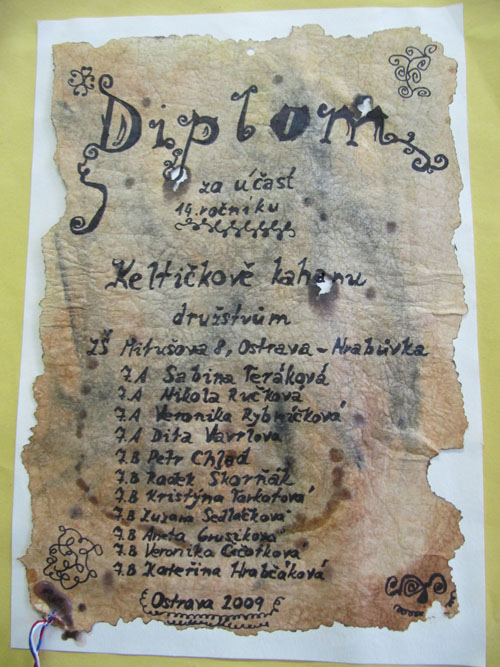 Diplom
za účast
14. ročníku
Keltičkově kahanu
družstvům
ZŠ Mitušova 8, Ostrava - Hrabůvka
7.A Sabina Teráková
7.A Nikola Ručková
7.A Veronika Rybníčková
7.A Dita Vavrlová
7.B Petr Chlad
7.B Radek Skorňák
7.B Kristýna Tarkotová
7.B Zuzana Sedláčková
7.B Aneta Grusiková
7.B Veronika
7.B Kateřina Hrabčáková
Ostrava 2009